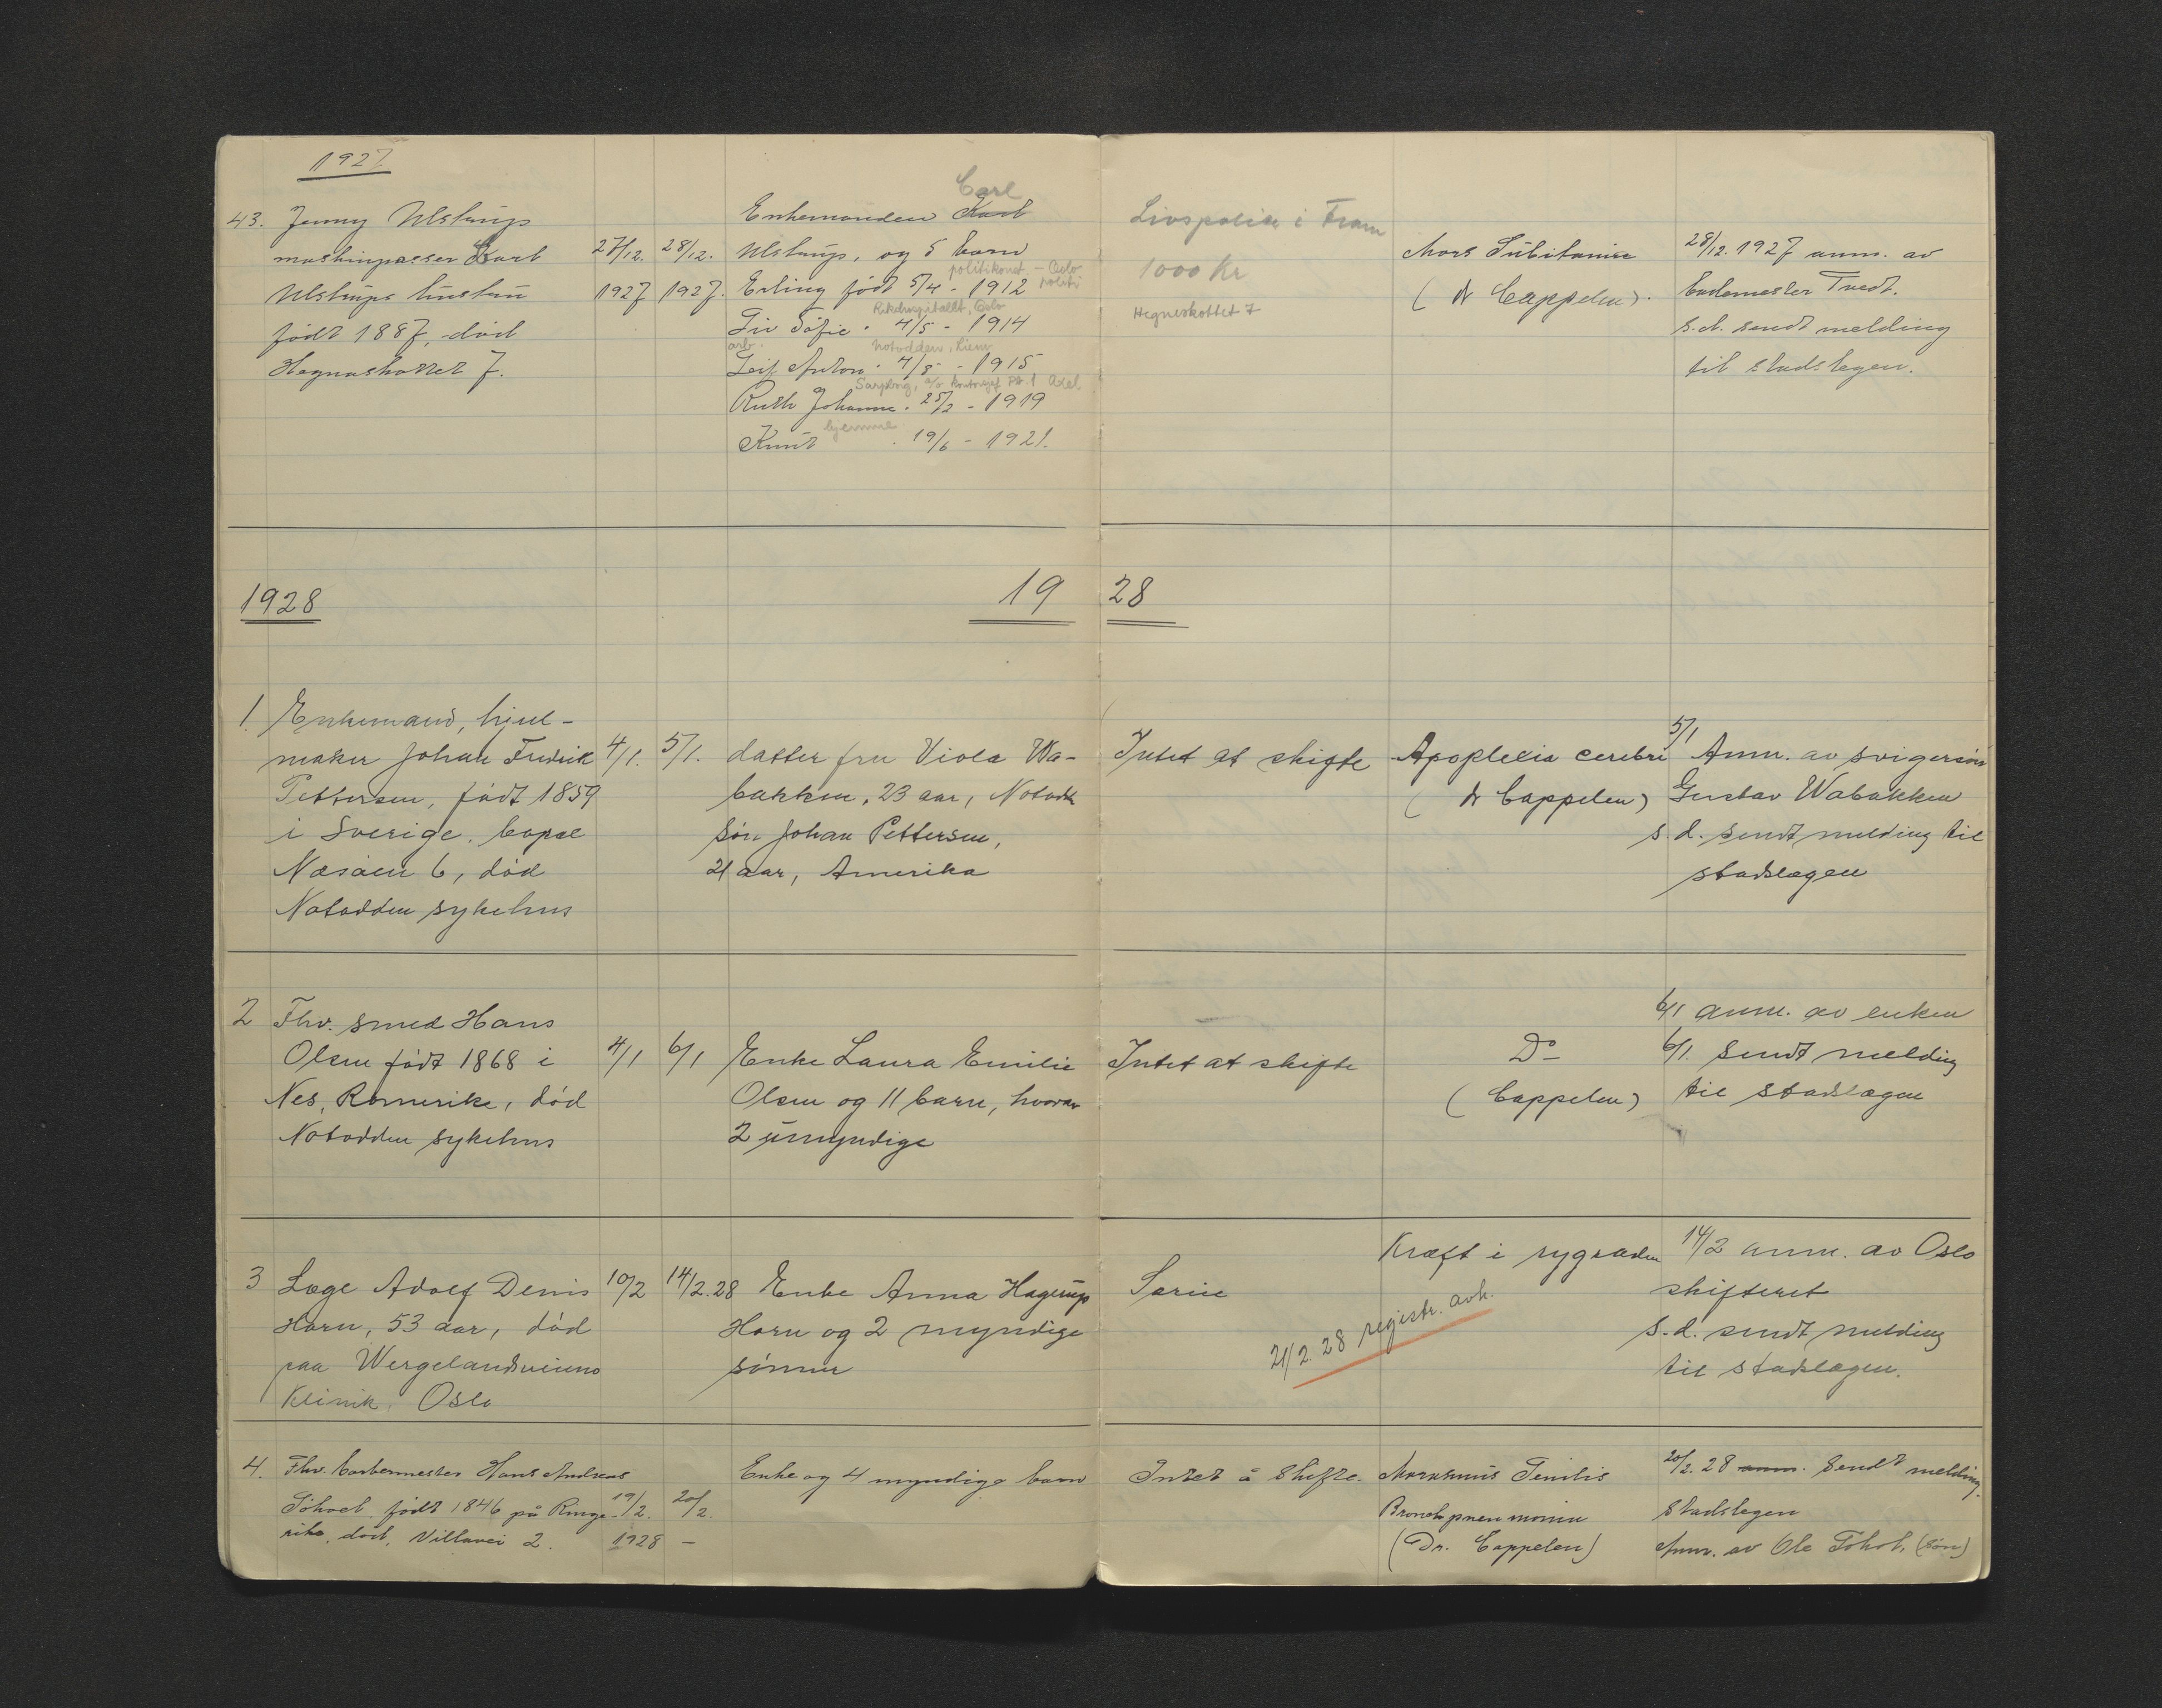 1927
43. Jenny Ulstrups
maskinpasser Karl
Ulstrups hustru
født 1887, död
Hegnaskottet 7.
27/12. 1927
28/12. 1927.
Enkemanden Karl Carl
Ulstrup, og 5 barn
politikonst. - Oslo politi
Erling født 5/4 - 1912
Rikshospitalet, Oslo
Liv Sofie " 4/5 - 1914
arb. Notodden, Liem
Leif Anton " 4/8 - 1915
Sarpsborg, Axel.
Ruth Johanne " 25/2 - 1919
hjemme
Knut " 19/6 - 1921.
Livspolise i Fram
1000 Kr
Hegneskottet 7
Mors Subitania
(Dr Cappelen).
28/12. 1927 anm. av
Tvedt.
s.d. sendt melding
til stadslegen.
1928
19 28
1. Enkemand, hjul-
maker Johan Fredrik
Pettersen, født 1859
i Sverige. bopæl
Næsøen 6, död
Notodden sykehus
4/1.
5/1.
datter fru Viola Wa-
bakken, 23 aar, Notodd
Søn Johan Pettersen,
21 aar, Amerika
Intet at skifte
Apoplexia cerebri
(Dr Cappelen)
5/1 Anm. av svigersøn
Gustav Wabakken
s.d. sendt melding til
stadslægen
2 Fhv. smed Hans
Olsen født 1868 i
Nes, Romerike, död
Notodden sykehus
4/1
6/1
Enke Laura Emilie
Olsen og 11 barn, hvorav
2 umyndige
Intet at skifte
Do
(Cappelen)
6/1 anm. av enken
6/1. sendt melding
til stadslægen
3 Læge Adolf Denis
Horn, 53 aar, död
paa Wergelandsveiens
Klinik, Oslo
10/2
14/2.28
Enke Anna Hagerup
Horn og 2 myndige
sønner
Særeie
21/2.28 registr. avh.
Kræft i rygraden
14/2 anm. av Oslo
skifteret
s.d. sendt melding
til stadslægen.
4. Fhv. garvermester Hans Andreas
født 1846 på Ringe-
rike, död, Villavei 2.
19/2. 1928
20/2. -
Enke og 4 myndige barn
Intet å skifte.
Marasmus Senilis
Bronchopneumonia
(Dr. Cappelen)
20/2. 28 anm. Sendt melding.
Stadslegen
Anm. av Ole (søn)